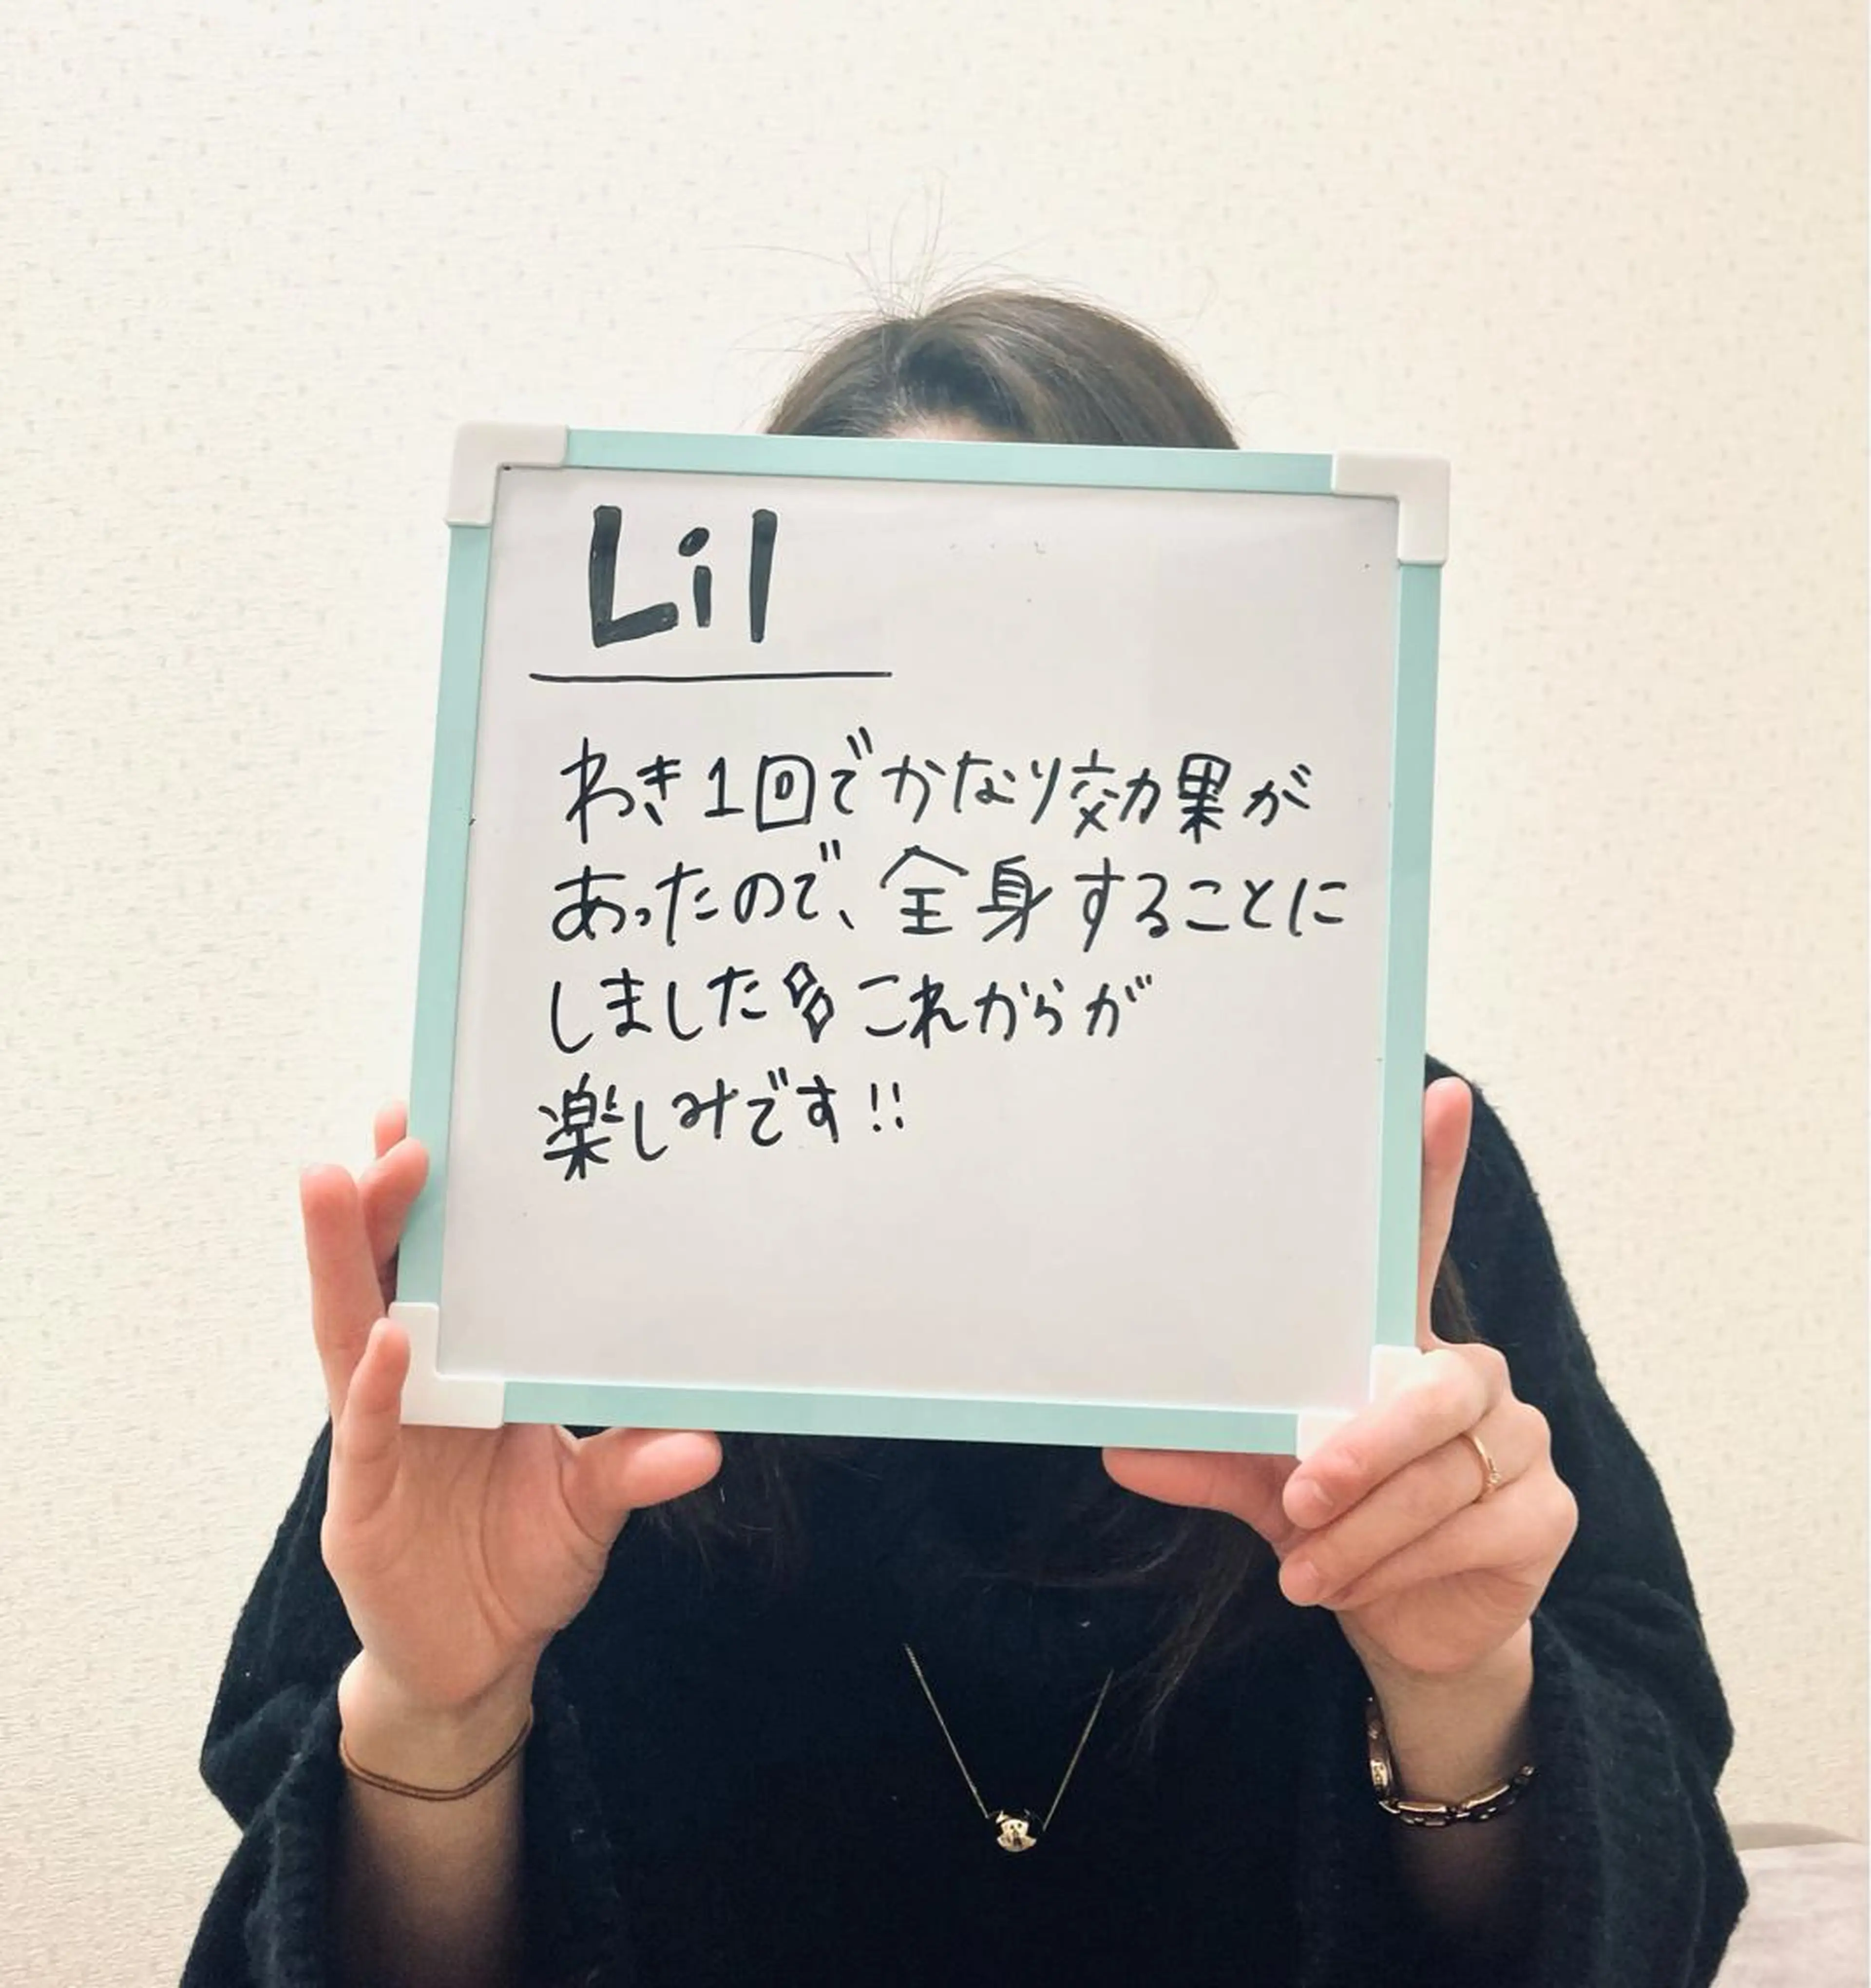 Lil
わき1回でかなり効果が
あったので、全身することに
しました これからが
楽しみです!!